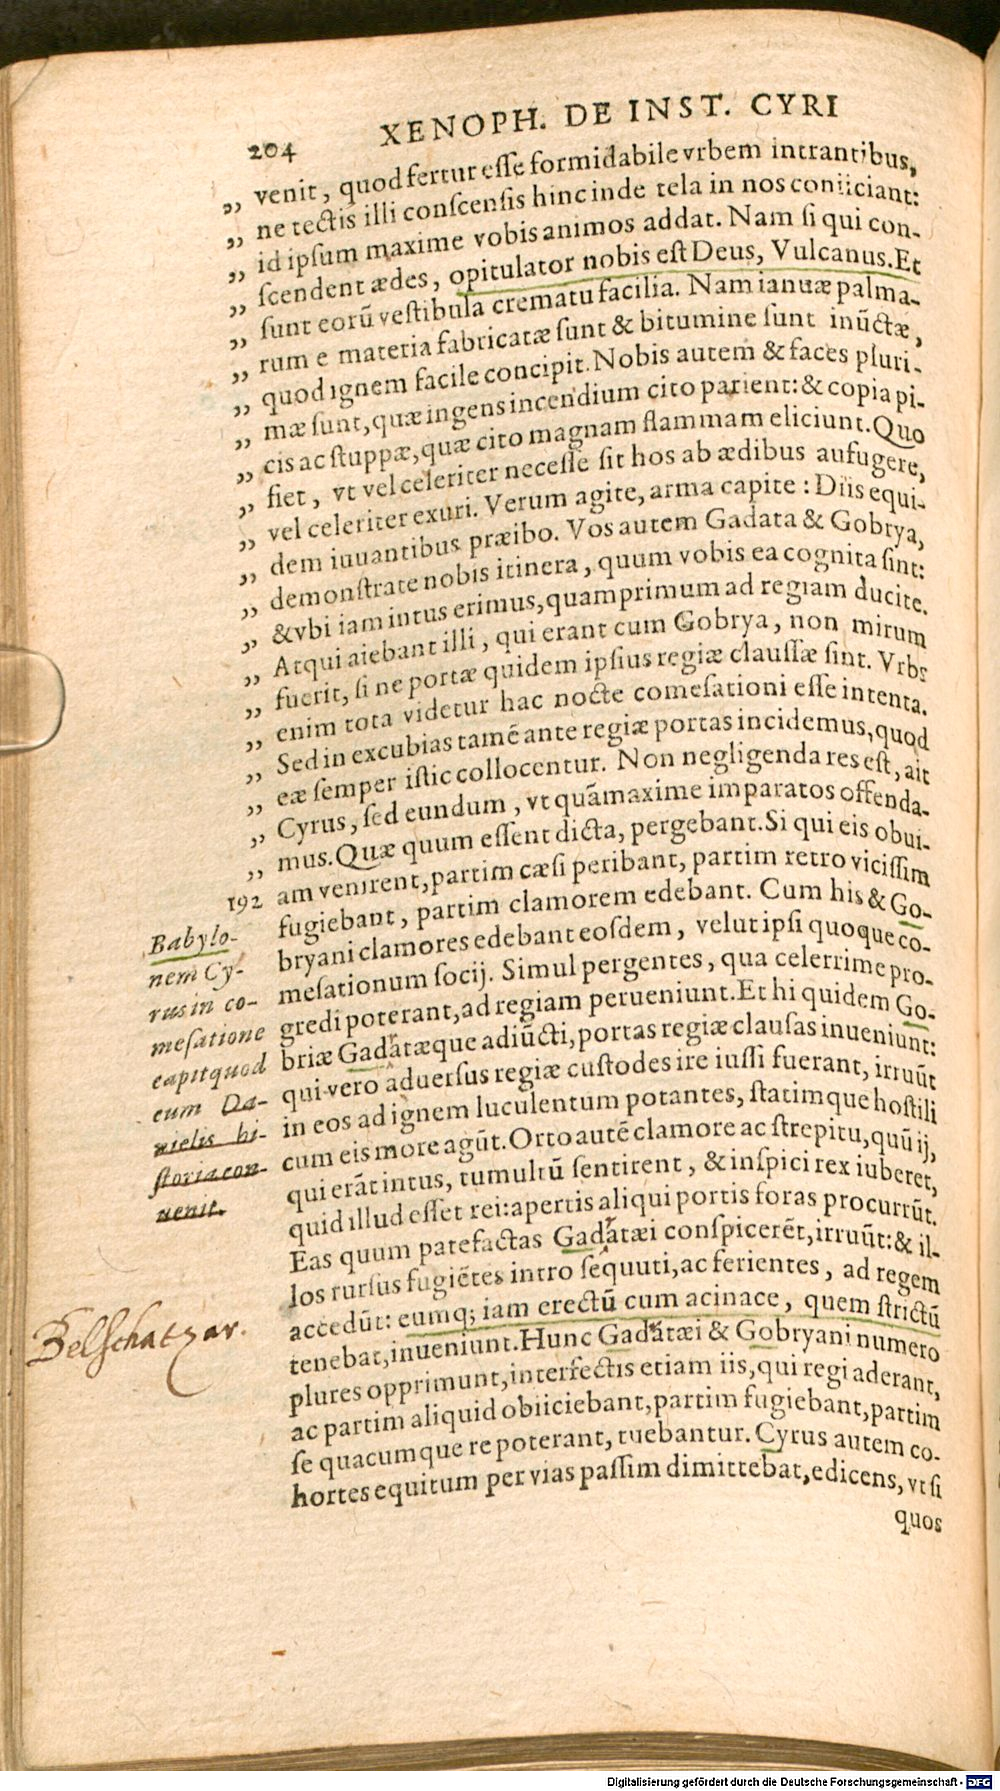 204 XENOPH. DE INST. CYRI
„ venit, quod fertur esse formidabile vrbem intrantibus,
„ ne tectis illi conscensis hinc inde tela in nos coniiciant:
„ id ipsum maxime vobis animos addat. Nam si qui con-
„ scendent ædes, opitulator nobis est Deus, Vulcanus. Et
„ sunt eorū vestibula crematu facilia. Nam ianuæ palma-
„ rum e materia fabricatæ sunt & bitumine sunt inūctæ,
„ quod ignem facile concipit. Nobis autem & faces pluri-
„ mæ sunt, quæ ingens incendium cito parient: & copia pi-
„ cis ac stuppæ, quæ cito magnam flammam eliciunt. Quo
„ fiet, vt vel celeriter necesse sit hos ab ædibus aufugere,
„ vel celeriter exuri. Verum agite, arma capite: Diis equi-
„ dem iuuantibus præibo. Vos autem Gadata & Gobrya,
„ demonstrate nobis itinera, quum vobis ea cognita sint:
„ & vbi iam intus erimus, quamprimum ad regiam ducite.
„ Atqui aiebant illi, qui erant cum Gobrya, non mirum
„ fuerit, si ne portæ quidem ipsius regiæ claussæ sint. Vrbs
„ enim tota videtur hac nocte comesationi esse intenta.
„ Sed in excubias tamē ante regiæ portas incidemus, quod
„ eæ semper istic collocentur. Non negligenda res est, ait
„ Cyrus, sed eundum, vt quāmaxime imparatos offenda-
„ mus. Quæ quum essent dicta, pergebant. Si qui eis obui-
192 am venirent, partim cæsi peribant, partim retro vicissim
fugiebant, partim clamorem edebant. Cum his & Go-
bryani clamores edebant eosdem, velut ipsi quoque co-
mesationum socij. Simul pergentes, qua celerrime pro-
gredi poterant, ad regiam perueniunt. Et hi quidem Go-
briæ Gadatæque adiūcti, portas regiæ clausas inueniunt:
qui vero aduersus regiæ custodes ire iussi fuerant, irruūt
in eos ad ignem luculentum potantes, statimque hostili
cum eis more agūt. Orto autē clamore ac strepitu, quū ij,
qui erāt intus, tumultū sentirent, & inspici rex iuberet,
quid illud esset rei: apertis aliqui portis foras procurrūt.
Eas quum patefactas Gadatæi conspicerēt, irruūt: & il-
los rursus fugiētes intro sequuti, ac ferientes, ad regem
accedūt: eumq; iam erectū cum acinace, quem strictū
tenebat, inueniunt. Hunc Gadatæi & Gobryani numero
plures opprimunt, interfectis etiam iis, qui regi aderant,
ac partim aliquid obiiciebant, partim fugiebant, partim
se quacumque re poterant, tuebantur. Cyrus autem co-
hortes equitum per vias passim dimittebat, edicens, vt si
quos
Babylo-
nem Cy-
rus in co-
mesatione
capit quod
cum Da-
nielis hi-
storia con-
uenit.
Belschatzar.
Digitalisierung gefördert durch die Deutsche Forschungsgemeinschaft - DFG